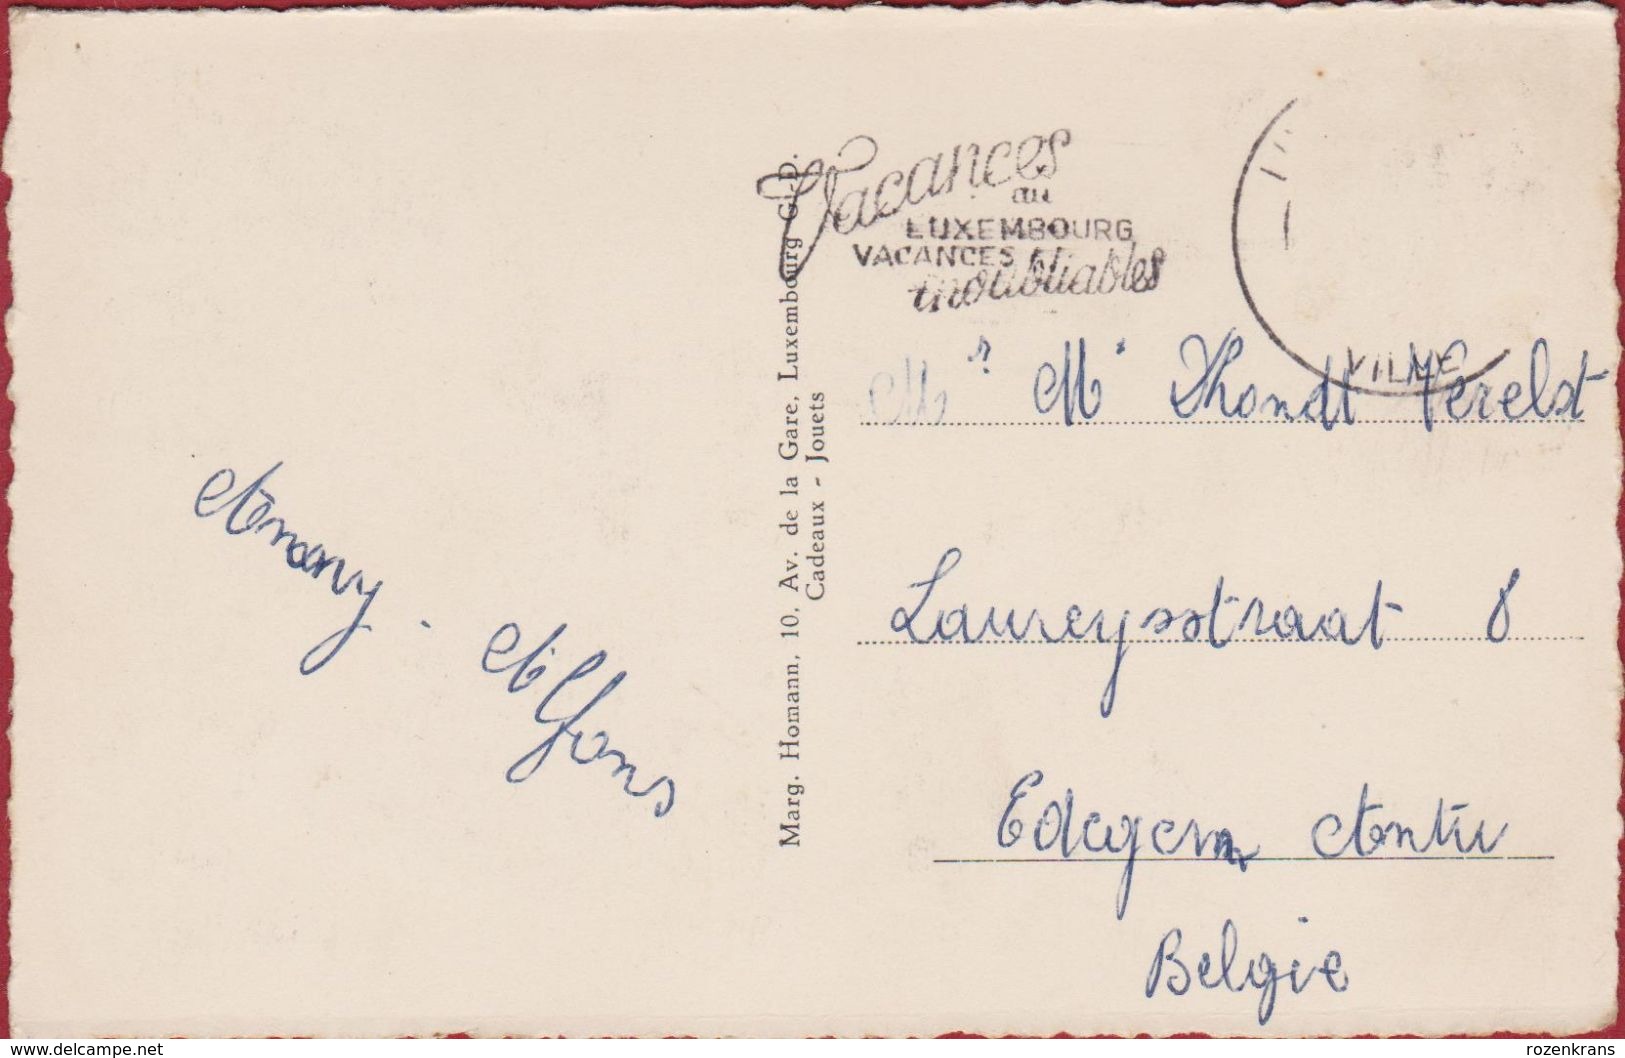 Vacances
au
LUXEMBOURG
VACANCES
inoubliables
VILLE
Mr Mme Dhondt Verelst
Laureysstraat 8
Edegem Antw
België
Anny - Alfons
Marg. Homann, 10, Av. de la Gare, Luxembourg G.-D.
Cadeaux - Jouets
www.delcampe.net
rozenkrans